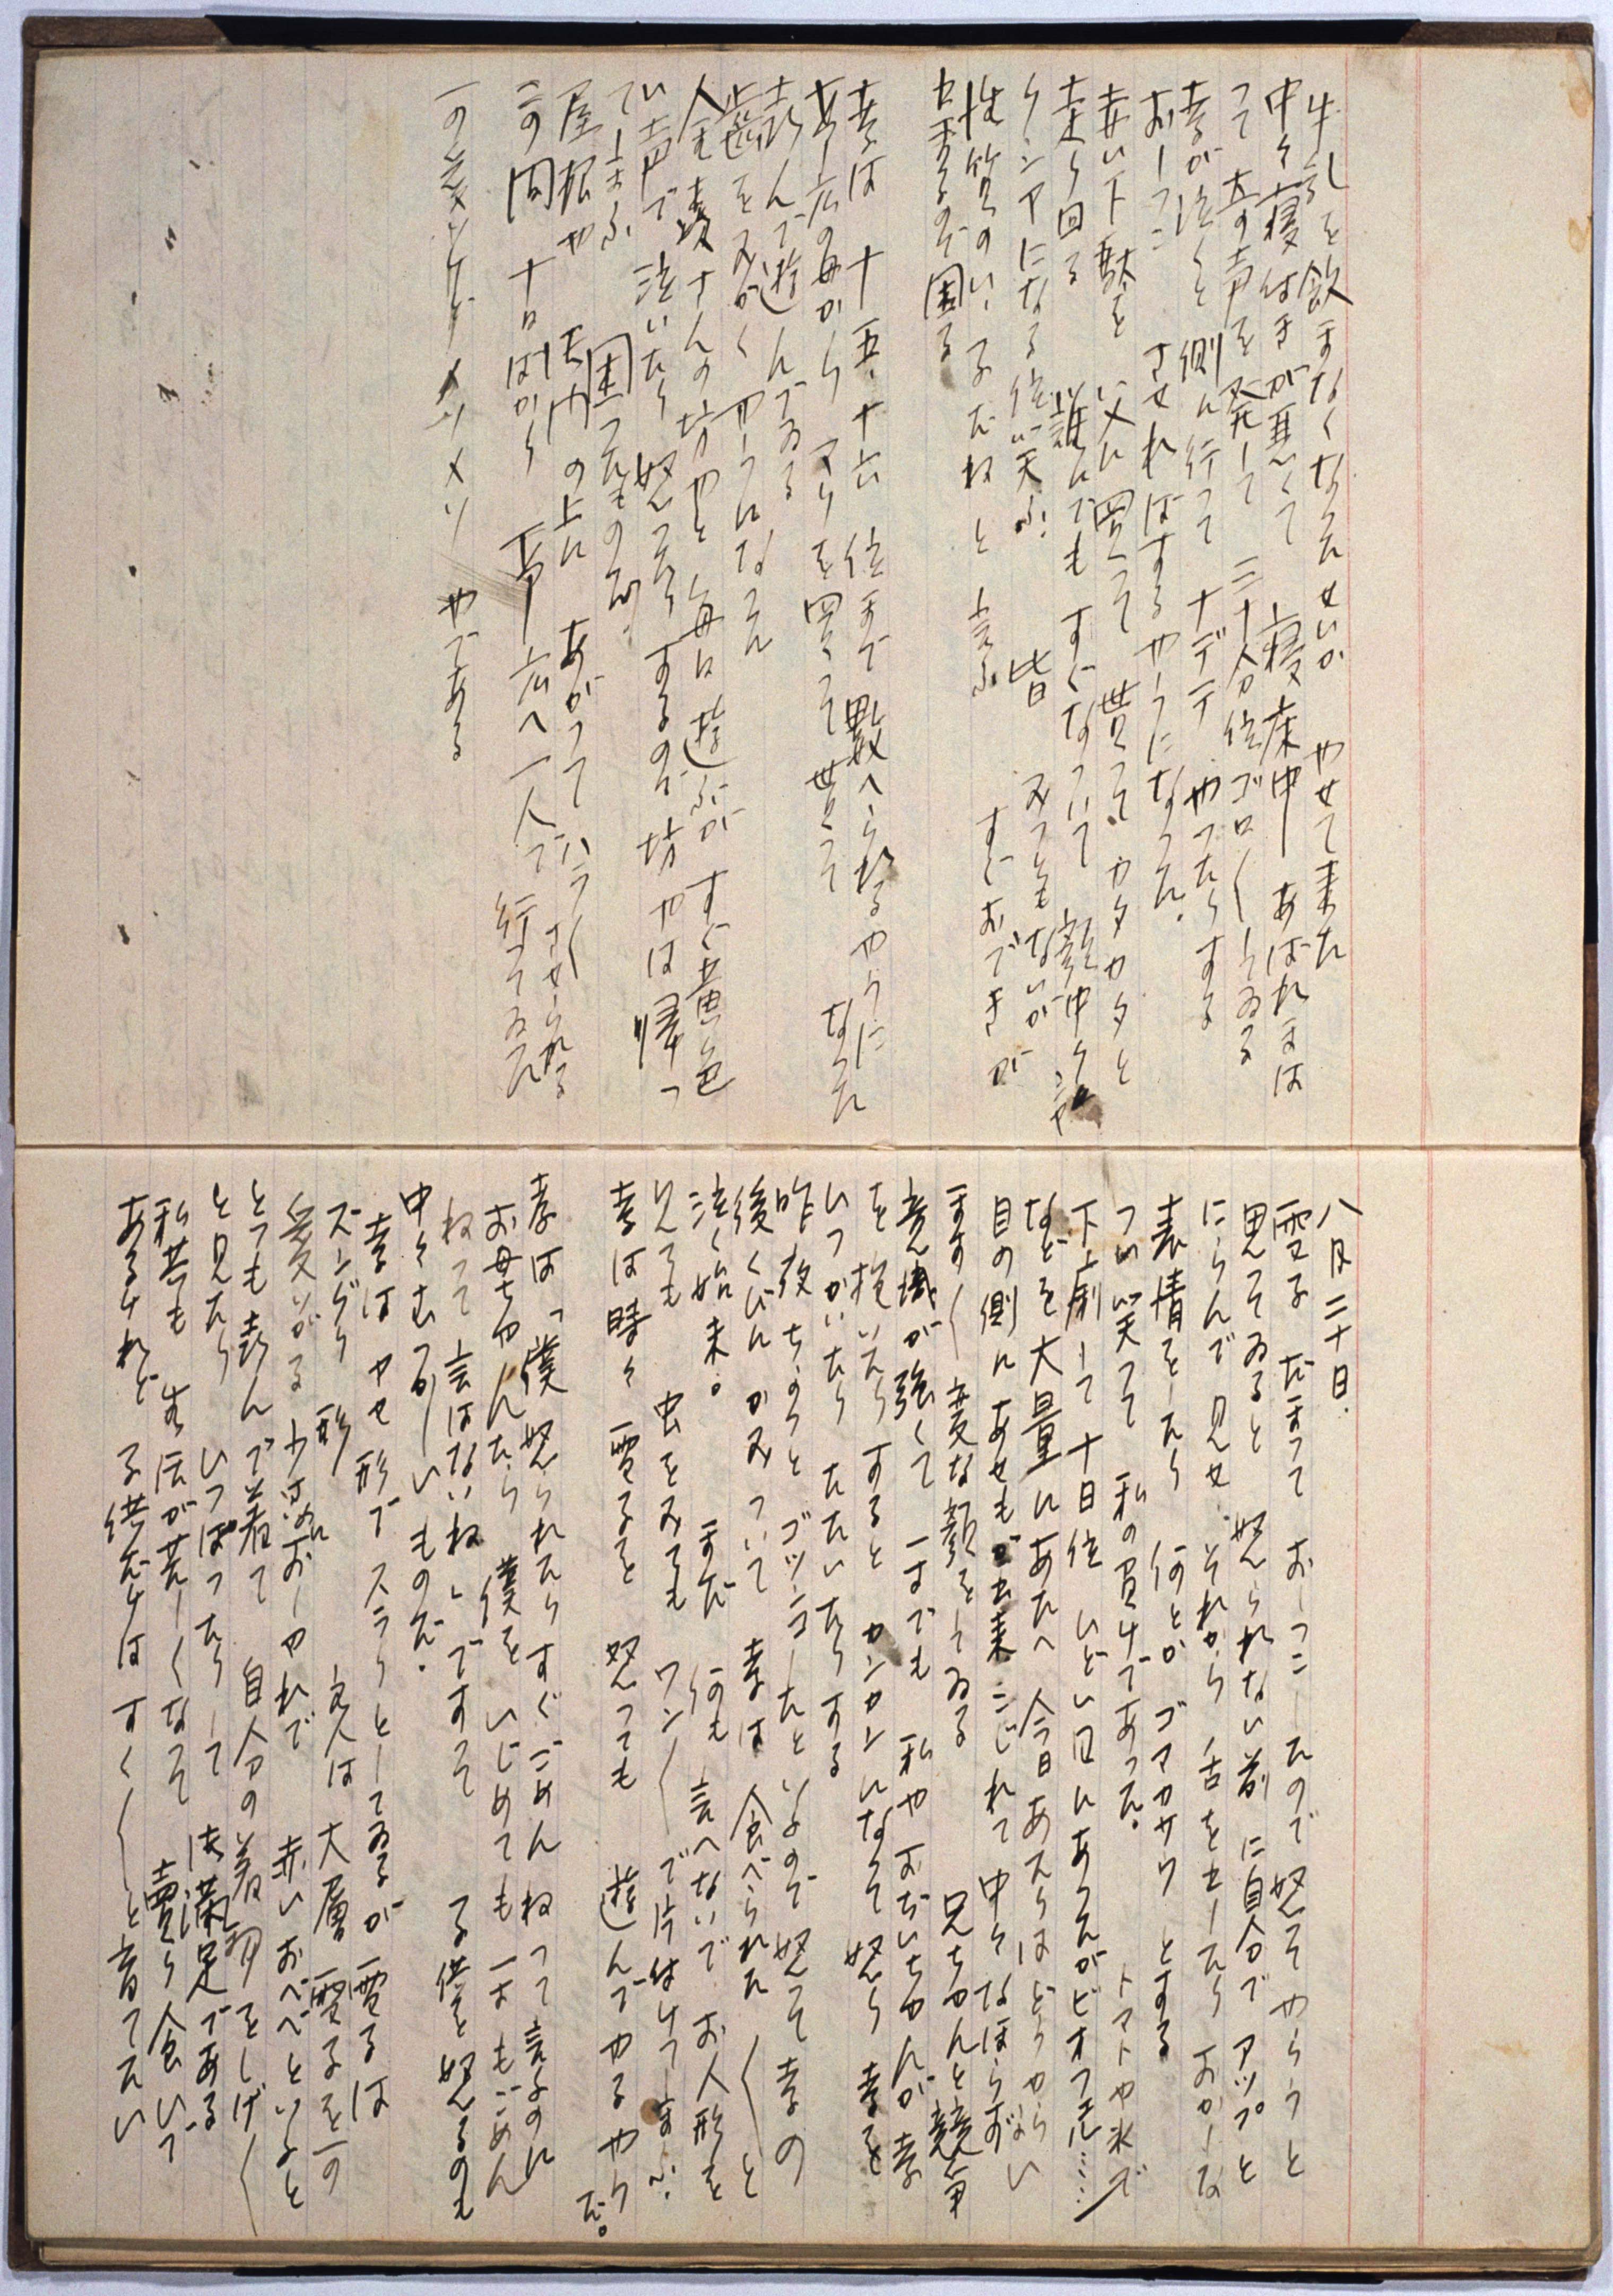 牛乳を飲まなくなったせいか やせて来た
中々寝付きが悪くて 寝床中 あばれまは
って 奇声を発して 二十分位ゴロ〱してゐる
幸が泣くと 側に行って ナデテ やったりする
おしっこ させればするやうになった。
赤い下駄を 父に買って貰って カタカタと
走り回る 誰にでも すぐなついて 顔中
クシャになる位 笑ふ。 皆 みっともないが
性質のいゝ子だねと 言ふ すぐおできが
出来るので困る
幸は 十五、十六 位まで 数へられるやうになった
母から マリを買って貰って
喜んで遊んでゐる
歯をみがく やうになった
金 さんの坊やと毎日遊ぶが すぐ黄色
い声で 泣いたり 怒ったりするので 坊やは帰っ
てしまふ 困ったものだ。
屋根や の上に あがって ハラ〱 させられる
この間 十日ばかり 一人で行ってゐた
メソメソ やである
八月二十日.
雪子 だまって おしっこしたので 怒ってやらうと
思ってゐると 怒られない前に自分で アップと
にらんで見せ それから 舌を出したり おかしな
表情をしたり 何とか ゴマカサウ とする
つい笑って 私の負けであった。
下痢して 十日位 ひどい目にあったがビオフェル……
などを大量にあたへ 今日あたりはどうやらいい
目の側にあせもが出来 こじれて中々なほらず
ます〱 変な顔をしてゐる 兄ちゃんと競争
意識が強くて 一寸でも 私や おぢいちゃんが 幸
を抱いたり すると カンカンになって怒り 幸を
ひっかいたり たたいたりする
昨夜 ちょっと ゴツンコしたと いふので 怒って幸の
後くびに かみついて 幸は 食べられた 〱と
泣く始末。 まだ 何も 言へないで お人形を
見ても 虫をみても ワン〱 で片付けてしまふ。
幸は時々 雪子を 怒っても 遊んでやるやうだ。
幸は「僕 怒られたらすぐごめんねって言ふのに
お母ちゃんたら 僕を いじめても 一寸もごめん
ねって 言はないね」ですって 子供を怒るのも
中々むつかしいものだ.
幸は ヤセ形で スラリとしてゐるが雪子は
ズングリ 形 父は 大層 雪子を可
愛がる おしゃれで 赤いおべべといふと
とっても喜んで着て 自分の着物をしげ〱
と見たり ひっぱったりして 大満足である
私共も 生活が苦しくなって 賣り食ひで
あるけれど 子供だけは すく〱と育てたい